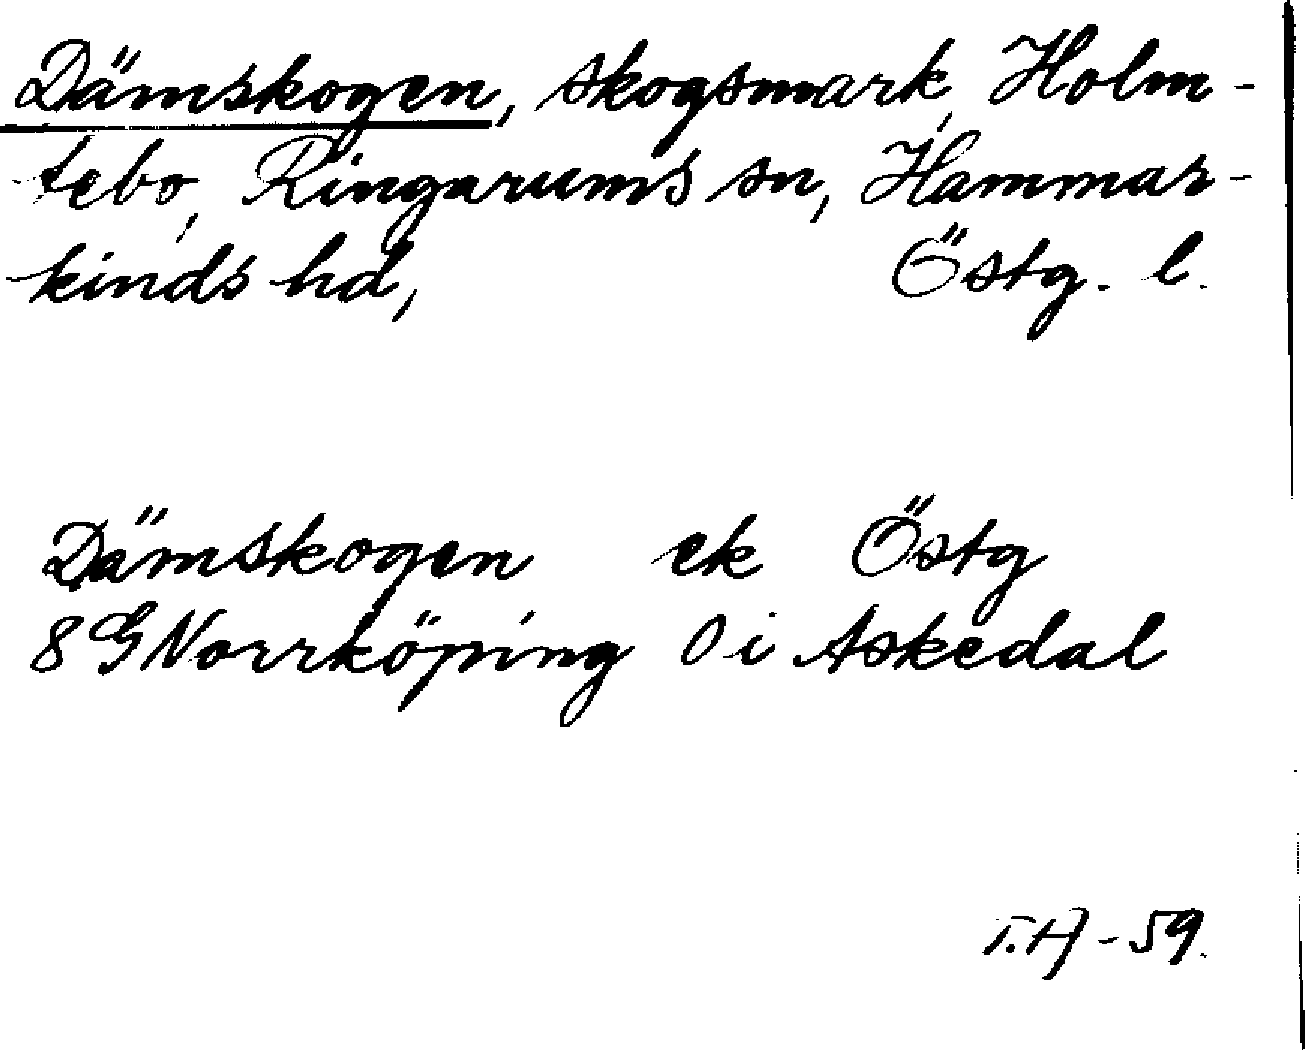 Dämskogen, skogsmark, Holm-
tebo, Ringarums sn, Hammar-
kinds hd, Östg. l.
Dämskogen ek Östg
8 G Norrköping 0 i Askedal
T.H - 59.